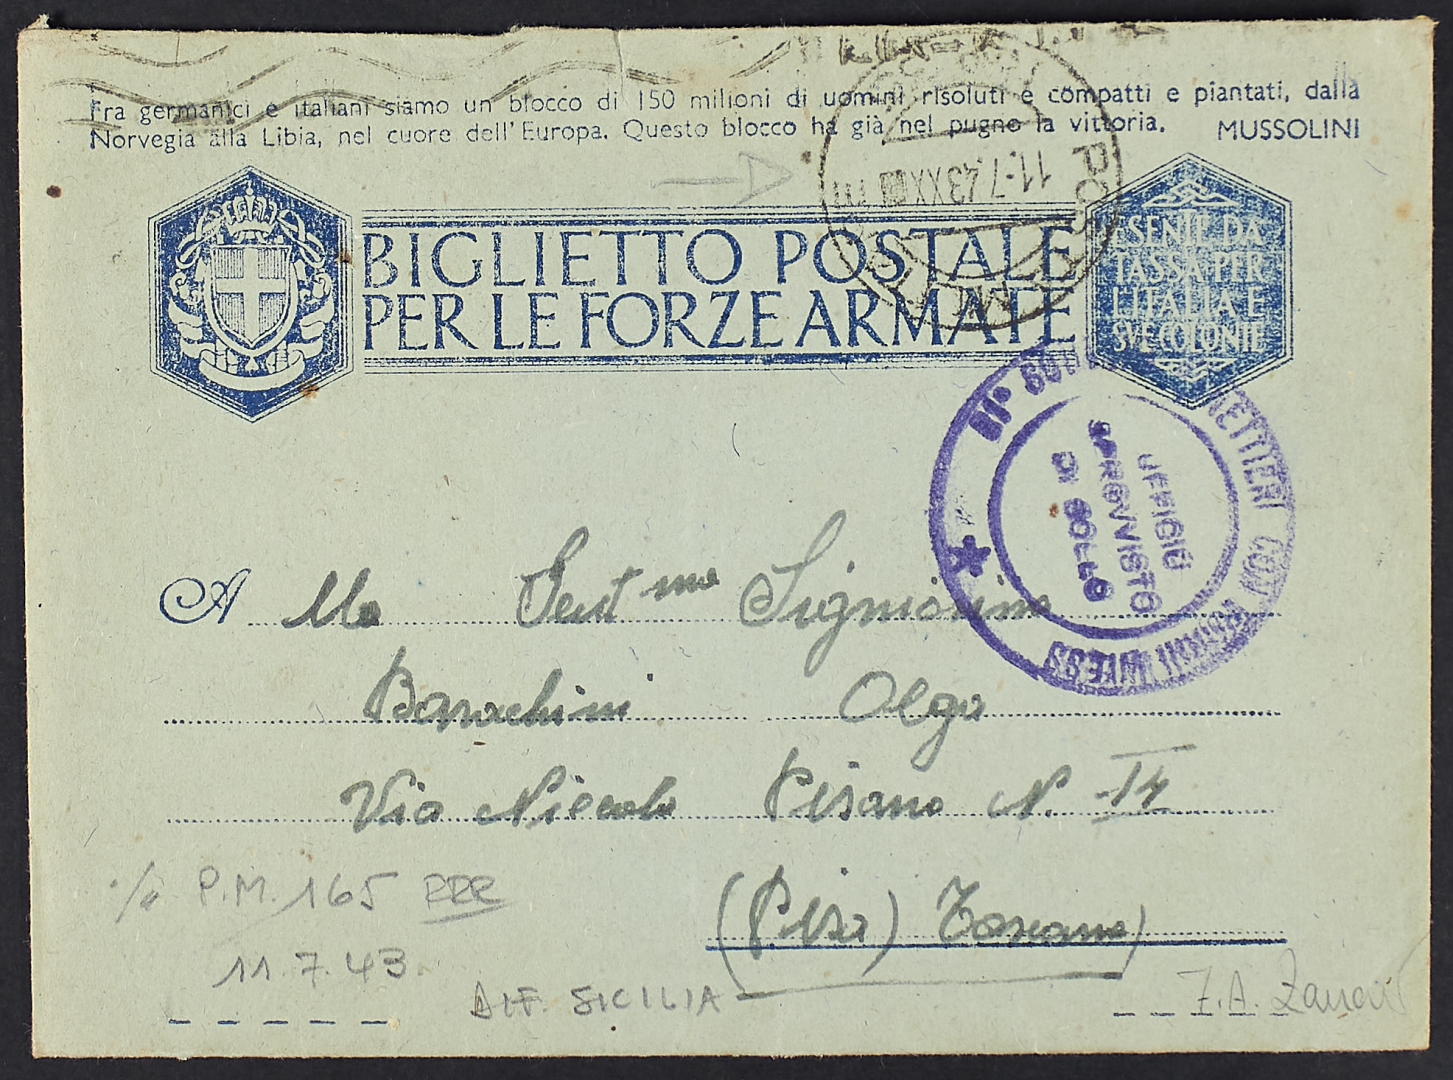 Fra germanici e italiani siamo un blocco di 150 milioni di uomini risoluti e compatti e piantati, dalla
Norvegia alla Libia, nel cuore dell'Europa. Questo blocco ha già nel pugno la vittoria. MUSSOLINI
11.7.43 XXI
BIGLIETTO POSTALE
PER LE FORZE ARMATE
ESENTE DA
TASSA PER
L'ITALIA E
SVE COLONIE
UFFICIO
SPROVVISTO
DI BOLLO
A Alla Gent ma Signorina
Barachini Olga
Via Niccolo Pisano N.
(Pisa) Toscana
P.M. 165 RRR
11.7.43
DIF. SICILIA